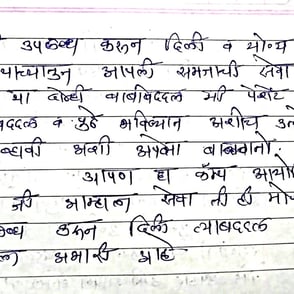 उपलब्ध करून दिली व योग्य
आपली समजाची सेवा
या दोन्ही बाबीबद्दल मी पेशंट
बद्दल व पुढे भविष्यात अशीच
व्हावी अशी अपेक्षा बाळगतो.
आपण हा कॅम्प आयो
जी आम्हाला सेवा ती ही मो
करून दिली त्याबद्दल
आभारी आहे